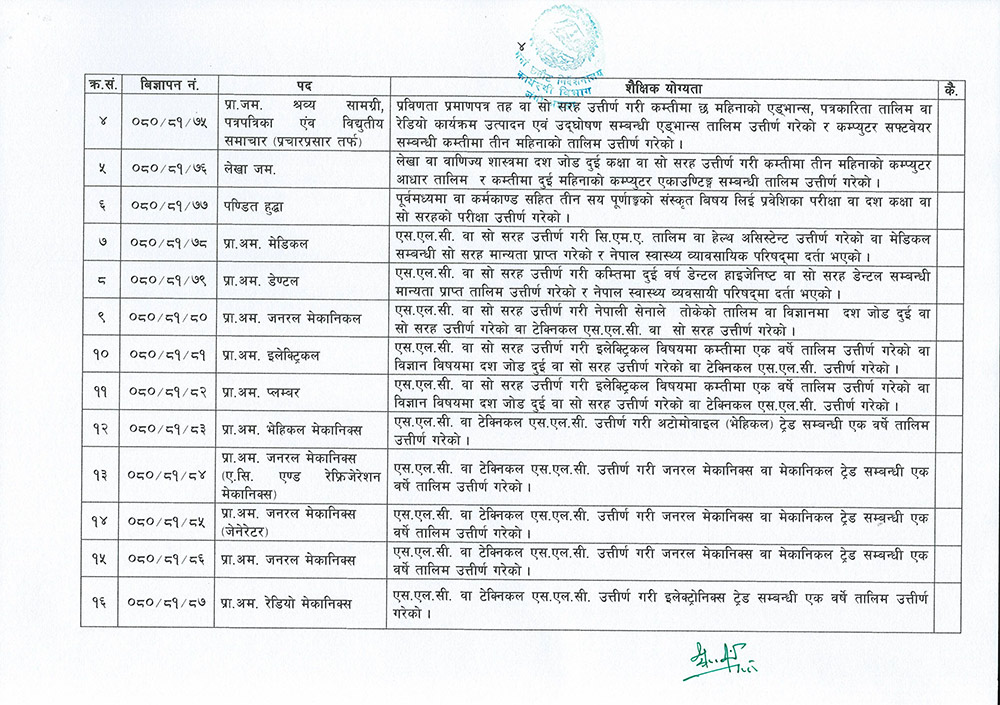 ४
क्र.सं. बिज्ञापन नं. पद शैक्षिक योग्यता कै.
४ ०८०/८१/७५ प्रा.जम. श्रव्य सामग्री, पत्रपत्रिका एंव विद्युतीय समाचार (प्रचारप्रसार तर्फ) प्रविणता प्रमाणपत्र तह वा सो सरह उत्तीर्ण गरी कम्तीमा छ महिनाको एड्भान्स, पत्रकारिता तालिम वा
रेडियो कार्यक्रम उत्पादन एवं उद्घोषण सम्बन्धी एड्भान्स तालिम उत्तीर्ण गरेको र कम्प्युटर सफ्टवेयर
सम्बन्धी कम्तीमा तीन महिनाको तालिम उत्तीर्ण गरेको ।
५ ०८०/८१/७६ लेखा जम. लेखा वा वाणिज्य शास्त्रमा दश जोड दुई कक्षा वा सो सरह उत्तीर्ण गरी कम्तीमा तीन महिनाको कम्प्युटर
आधार तालिम र कम्तीमा दुई महिनाको कम्प्युटर एकाउण्टिङ्ग सम्बन्धी तालिम उत्तीर्ण गरेको ।
६ ०८०/८१/७७ पण्डित हुद्दा पूर्वमध्यमा वा कर्मकाण्ड सहित तीन सय पूर्णाङ्कको संस्कृत बिषय लिई प्रवेशिका परीक्षा वा दश कक्षा वा
सो सरहको परीक्षा उत्तीर्ण गरेको ।
७ ०८०/८१/७८ प्रा.अम. मेडिकल एस.एल.सी. वा सो सरह उत्तीर्ण गरी सि.एम.ए. तालिम वा हेल्थ असिस्टेन्ट उत्तीर्ण गरेको वा मेडिकल
सम्बन्धी सो सरह मान्यता प्राप्त गरेको र नेपाल स्वास्थ्य व्यावसायिक परिषद्मा दर्ता भएको ।
८ ०८०/८१/७९ प्रा.अम. डेण्टल एस.एल.सी. वा सो सरह उत्तीर्ण गरी कम्तिमा दुई वर्ष डेन्टल हाइजेनिष्ट वा सो सरह डेन्टल सम्बन्धी
मान्यता प्राप्त तालिम उत्तीर्ण गरेको र नेपाल स्वास्थ्य व्यवसायी परिषद्मा दर्ता भएको ।
९ ०८०/८१/८० प्रा.अम. जनरल मेकानिकल एस.एल.सी. वा सो सरह उत्तीर्ण गरी नेपाली सेनाले तोकेको तालिम वा विज्ञानमा दश जोड दुई वा
सो सरह उत्तीर्ण गरेको वा टेक्निकल एस.एल.सी. वा सो सरह उत्तीर्ण गरेको ।
१० ०८०/८१/८१ प्रा.अम. इलेक्ट्रिकल एस.एल.सी. वा सो सरह उत्तीर्ण गरी इलेक्ट्रिकल विषयमा कम्तीमा एक वर्षे तालिम उत्तीर्ण गरेको वा
विज्ञान विषयमा दश जोड दुई वा सो सरह उत्तीर्ण गरेको वा टेक्निकल एस.एल.सी. उत्तीर्ण गरेको ।
११ ०८०/८१/८२ प्रा.अम. प्लम्बर एस.एल.सी. वा सो सरह उत्तीर्ण गरी इलेक्ट्रिकल विषयमा कम्तीमा एक वर्षे तालिम उत्तीर्ण गरेको वा
विज्ञान विषयमा दश जोड दुई वा सो सरह उत्तीर्ण गरेको वा टेक्निकल एस.एल.सी. उत्तीर्ण गरेको ।
१२ ०८०/८१/८३ प्रा.अम. भेहिकल मेकानिक्स एस.एल.सी. वा टेक्निकल एस.एल.सी. उत्तीर्ण गरी अटोमोवाइल (भेहिकल) ट्रेड सम्बन्धी एक वर्षे तालिम
उत्तीर्ण गरेको ।
१३ ०८०/८१/८४ प्रा.अम. जनरल मेकानिक्स (ए.सि. एण्ड रेफ्रिजेरेशन मेकानिक्स) एस.एल.सी. वा टेक्निकल एस.एल.सी. उत्तीर्ण गरी जनरल मेकानिक्स वा मेकानिकल ट्रेड सम्बन्धी एक
वर्षे तालिम उत्तीर्ण गरेको ।
१४ ०८०/८१/८५ प्रा.अम. जनरल मेकानिक्स (जेनेरेटर) एस.एल.सी. वा टेक्निकल एस.एल.सी. उत्तीर्ण गरी जनरल मेकानिक्स वा मेकानिकल ट्रेड सम्बन्धी एक
वर्षे तालिम उत्तीर्ण गरेको ।
१५ ०८०/८१/८६ प्रा.अम. जनरल मेकानिक्स एस.एल.सी. वा टेक्निकल एस.एल.सी. उत्तीर्ण गरी जनरल मेकानिक्स वा मेकानिकल ट्रेड सम्बन्धी एक
वर्षे तालिम उत्तीर्ण गरेको ।
१६ ०८०/८१/८७ प्रा.अम. रेडियो मेकानिक्स एस.एल.सी. वा टेक्निकल एस.एल.सी. उत्तीर्ण गरी इलेक्ट्रोनिक्स ट्रेड सम्बन्धी एक वर्षे तालिम उत्तीर्ण
गरेको ।